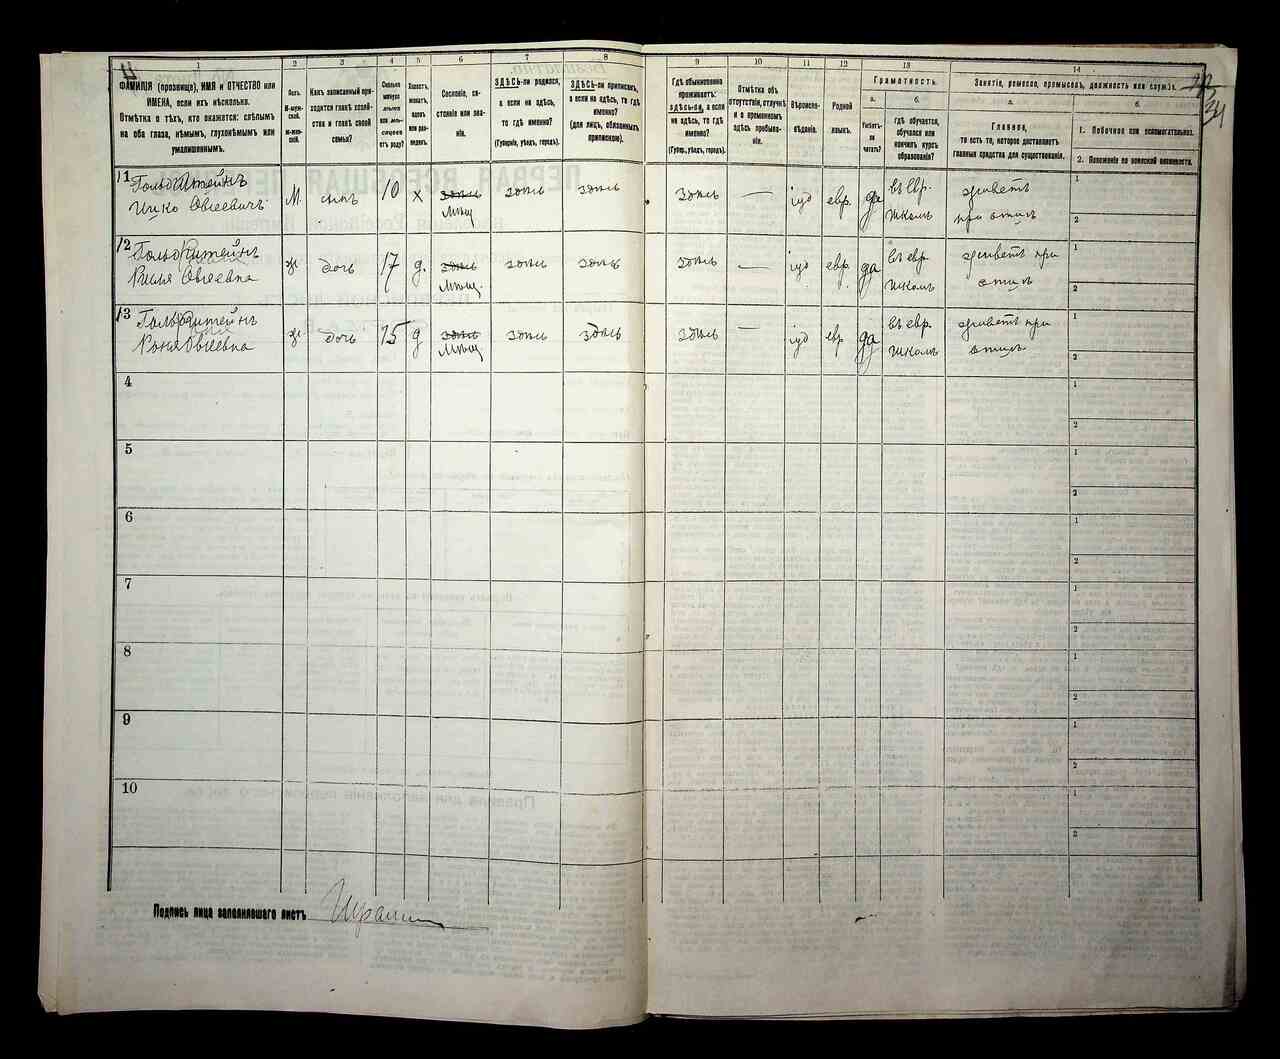 1
ФАМИЛІЯ (прозвище), ИМЯ и ОТЧЕСТВО или
ИМЕНА, если ихъ нѣсколько.
Отмѣтка о тѣхъ, кто окажется: слѣпымъ
на оба глаза, нѣмымъ, глухонѣмымъ или
умалишеннымъ.
2
Полъ.
М-муж-
ской.
ж-жен-
скій.
3
Какъ записанный при-
ходится главѣ хозяй-
ства и главѣ своей
семьи?
4
Сколько
минуло
лѣтъ
или мѣ-
сяцевъ
отъ роду?
5
Холостъ,
женатъ,
вдовъ
или раз-
веденъ.
6
Сословіе, со-
стояніе или зва-
ніе.
7
ЗДѢСЬ-ли родился,
а если не здѣсь,
то гдѣ именно?
(Губернія, уѣздъ, городъ).
8
ЗДѢСЬ-ли приписанъ,
а если не здѣсь, то гдѣ
именно?
(для лицъ, обязанныхъ
припискою).
9
Гдѣ обыкновенно
проживаетъ:
здѣсь-ли, а если
не здѣсь, то гдѣ
именно?
(Губер., уѣздъ, городъ).
10
Отмѣтка объ
отсутствіи, отлучкѣ
и о временномъ
здѣсь пребыва-
ніи.
11
Вѣроиспо-
вѣданіе.
12
Родной
языкъ.
13
Грамотность.
а.
Умѣетъ-
ли
читать?
б.
Гдѣ обучается,
обучался или
кончилъ курсъ
образованія?
14
Занятіе, ремесло, промыселъ, должность или служба.
а.
Главное,
то есть то, которое доставляетъ
главныя средства для существованія.
б.
1. Побочное или вспомогательное.
2. Положеніе по воинской повинности.
34
11
Гольдштейнъ
Ицко Овсеевичъ
М.
сынъ
10
х
здѣсь
мѣщ
здѣсь
здѣсь
здѣсь
—
іуд
евр.
да
въ евр.
школѣ
живетъ
при отцѣ
1
2
12
Гольдштейнъ
Овсеевна
ж
дочь
17
д.
здѣсь
мѣщ.
здѣсь
здѣсь
здѣсь
—
іуд
евр.
да
въ евр.
школѣ
живетъ при
отцѣ
1
2
13
Гольдштейнъ
Овсеевна
ж
дочь
15
д
здѣсь
мѣщ
здѣсь
здѣсь
здѣсь
—
іуд
евр
да
въ евр.
школѣ
живетъ при
отцѣ
1
2
4
1
2
5
1
2
6
1
2
7
1
2
8
1
2
9
1
2
10
1
2
Подпись лица заполнявшаго листъ